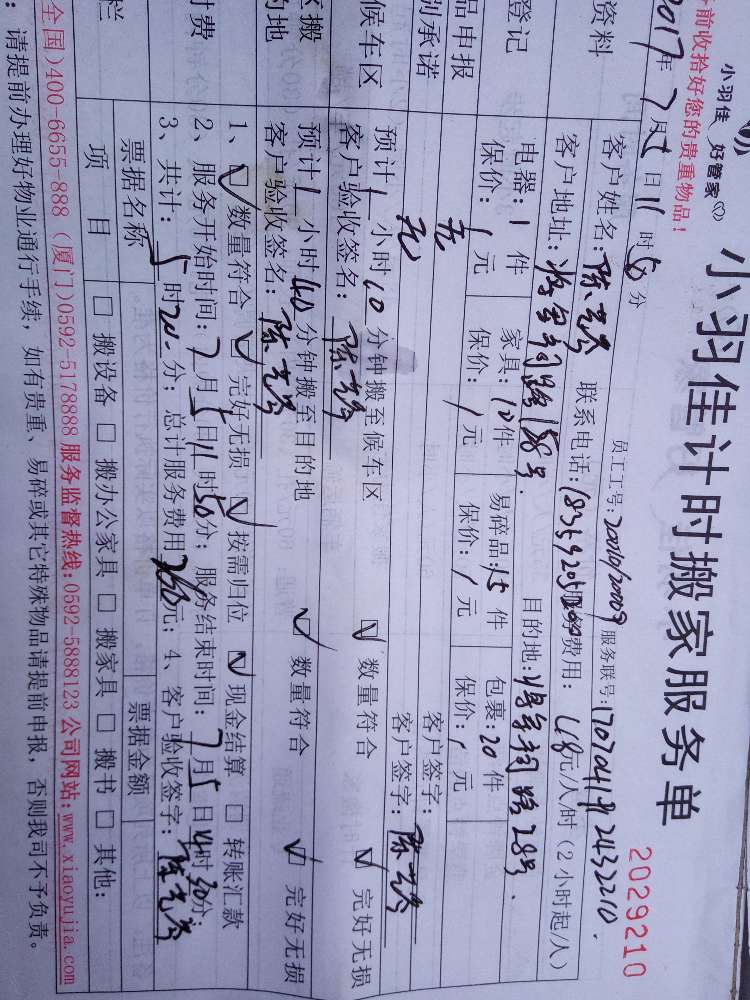 小羽佳 好管家
小羽佳计时搬家服务单
2029210
前收拾好您的贵重物品！
员工工号：
服务联号：
2017年7月5日11时50分
资料
客户姓名：
联系电话：
服务费用：
元/人/时（2小时起/人）
客户地址：
158号
目的地：
28号
登记
电器：1件
家具：10件
易碎品：15件
包裹：20件
保价：/元
保价：/元
保价：/元
保价：/元
品申报
无
客户签字：
别承诺
无
客户签字：
候车区
预计1小时10分钟搬至候车区
数量符合
完好无损
客户验收签名：
区搬
预计1小时40分钟搬至目的地
数量符合
完好无损
的地
客户验收签名：
1、数量符合 完好无损 按需归位 现金结算 转账汇款
付费
2、服务开始时间：7月5日11时50分；服务结束时间：7月5日
时
分；
3、共计：5时20分；总计服务费用
元；4、客户验收签字：
票据名称
票据金额
栏
项 目
搬设备 搬办公家具 搬家具 搬书 其他：
全国)400-6655-888 (厦门)0592-5178888 服务监督热线:0592-5888123 公司网站:www.xiaoyujia.com
：请提前办理好物业通行手续，如有贵重、易碎或其它特殊物品请提前申报，否则我司不予负责。